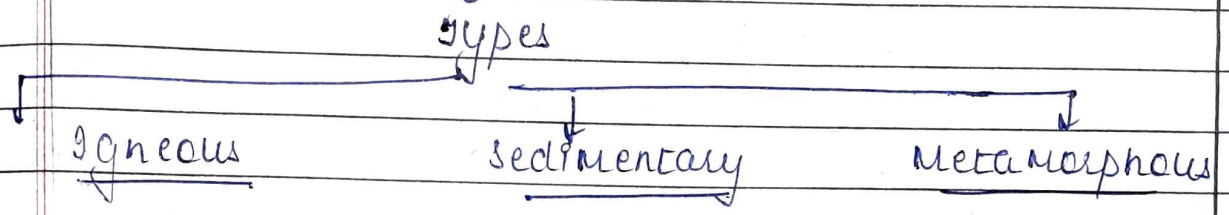 Types
Igneous Sedimentary Metamorphous